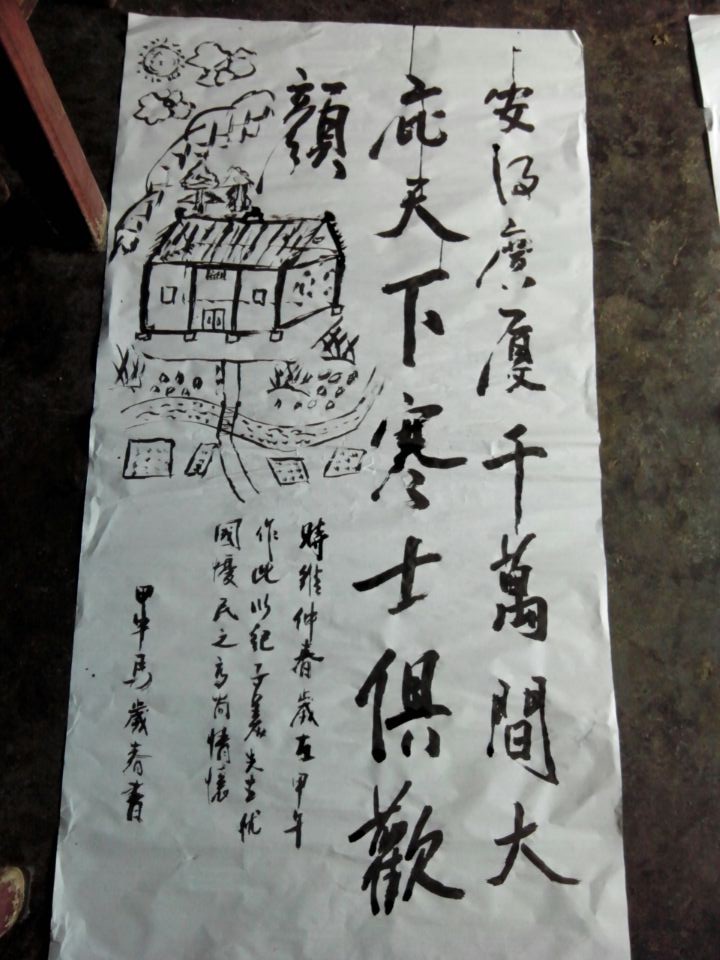 安得廣廈千萬間大
庇天下寒士俱歡
顏
時維仲春歲在甲午
作此以紀子美先生优
國懮民之高尚情懷
甲午馬歲春書